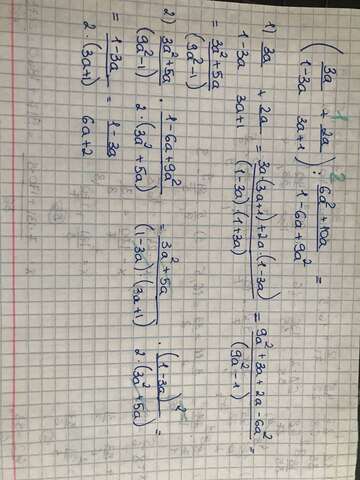 1 2
( 3a/(1-3a) + 2a/(3a+1) ) : (6a²+10a)/(1-6a+9a²) =
1) 3a/(1-3a) + 2a/(3a+1) = (3a·(3a+1)+2a·(1-3a))/((1-3a)·(1+3a)) = (9a²+3a+2a-6a²)/(9a²-1) =
= (3a²+5a)/(9a²-1)
2) (3a²+5a)/(9a²-1) · (1-6a+9a²)/(2·(3a²+5a)) = (3a²+5a)/((1-3a)·(3a+1)) · (1-3a)²/(2·(3a²+5a)) =
= (1-3a)/(2·(3a+1)) = (1-3a)/(6a+2)